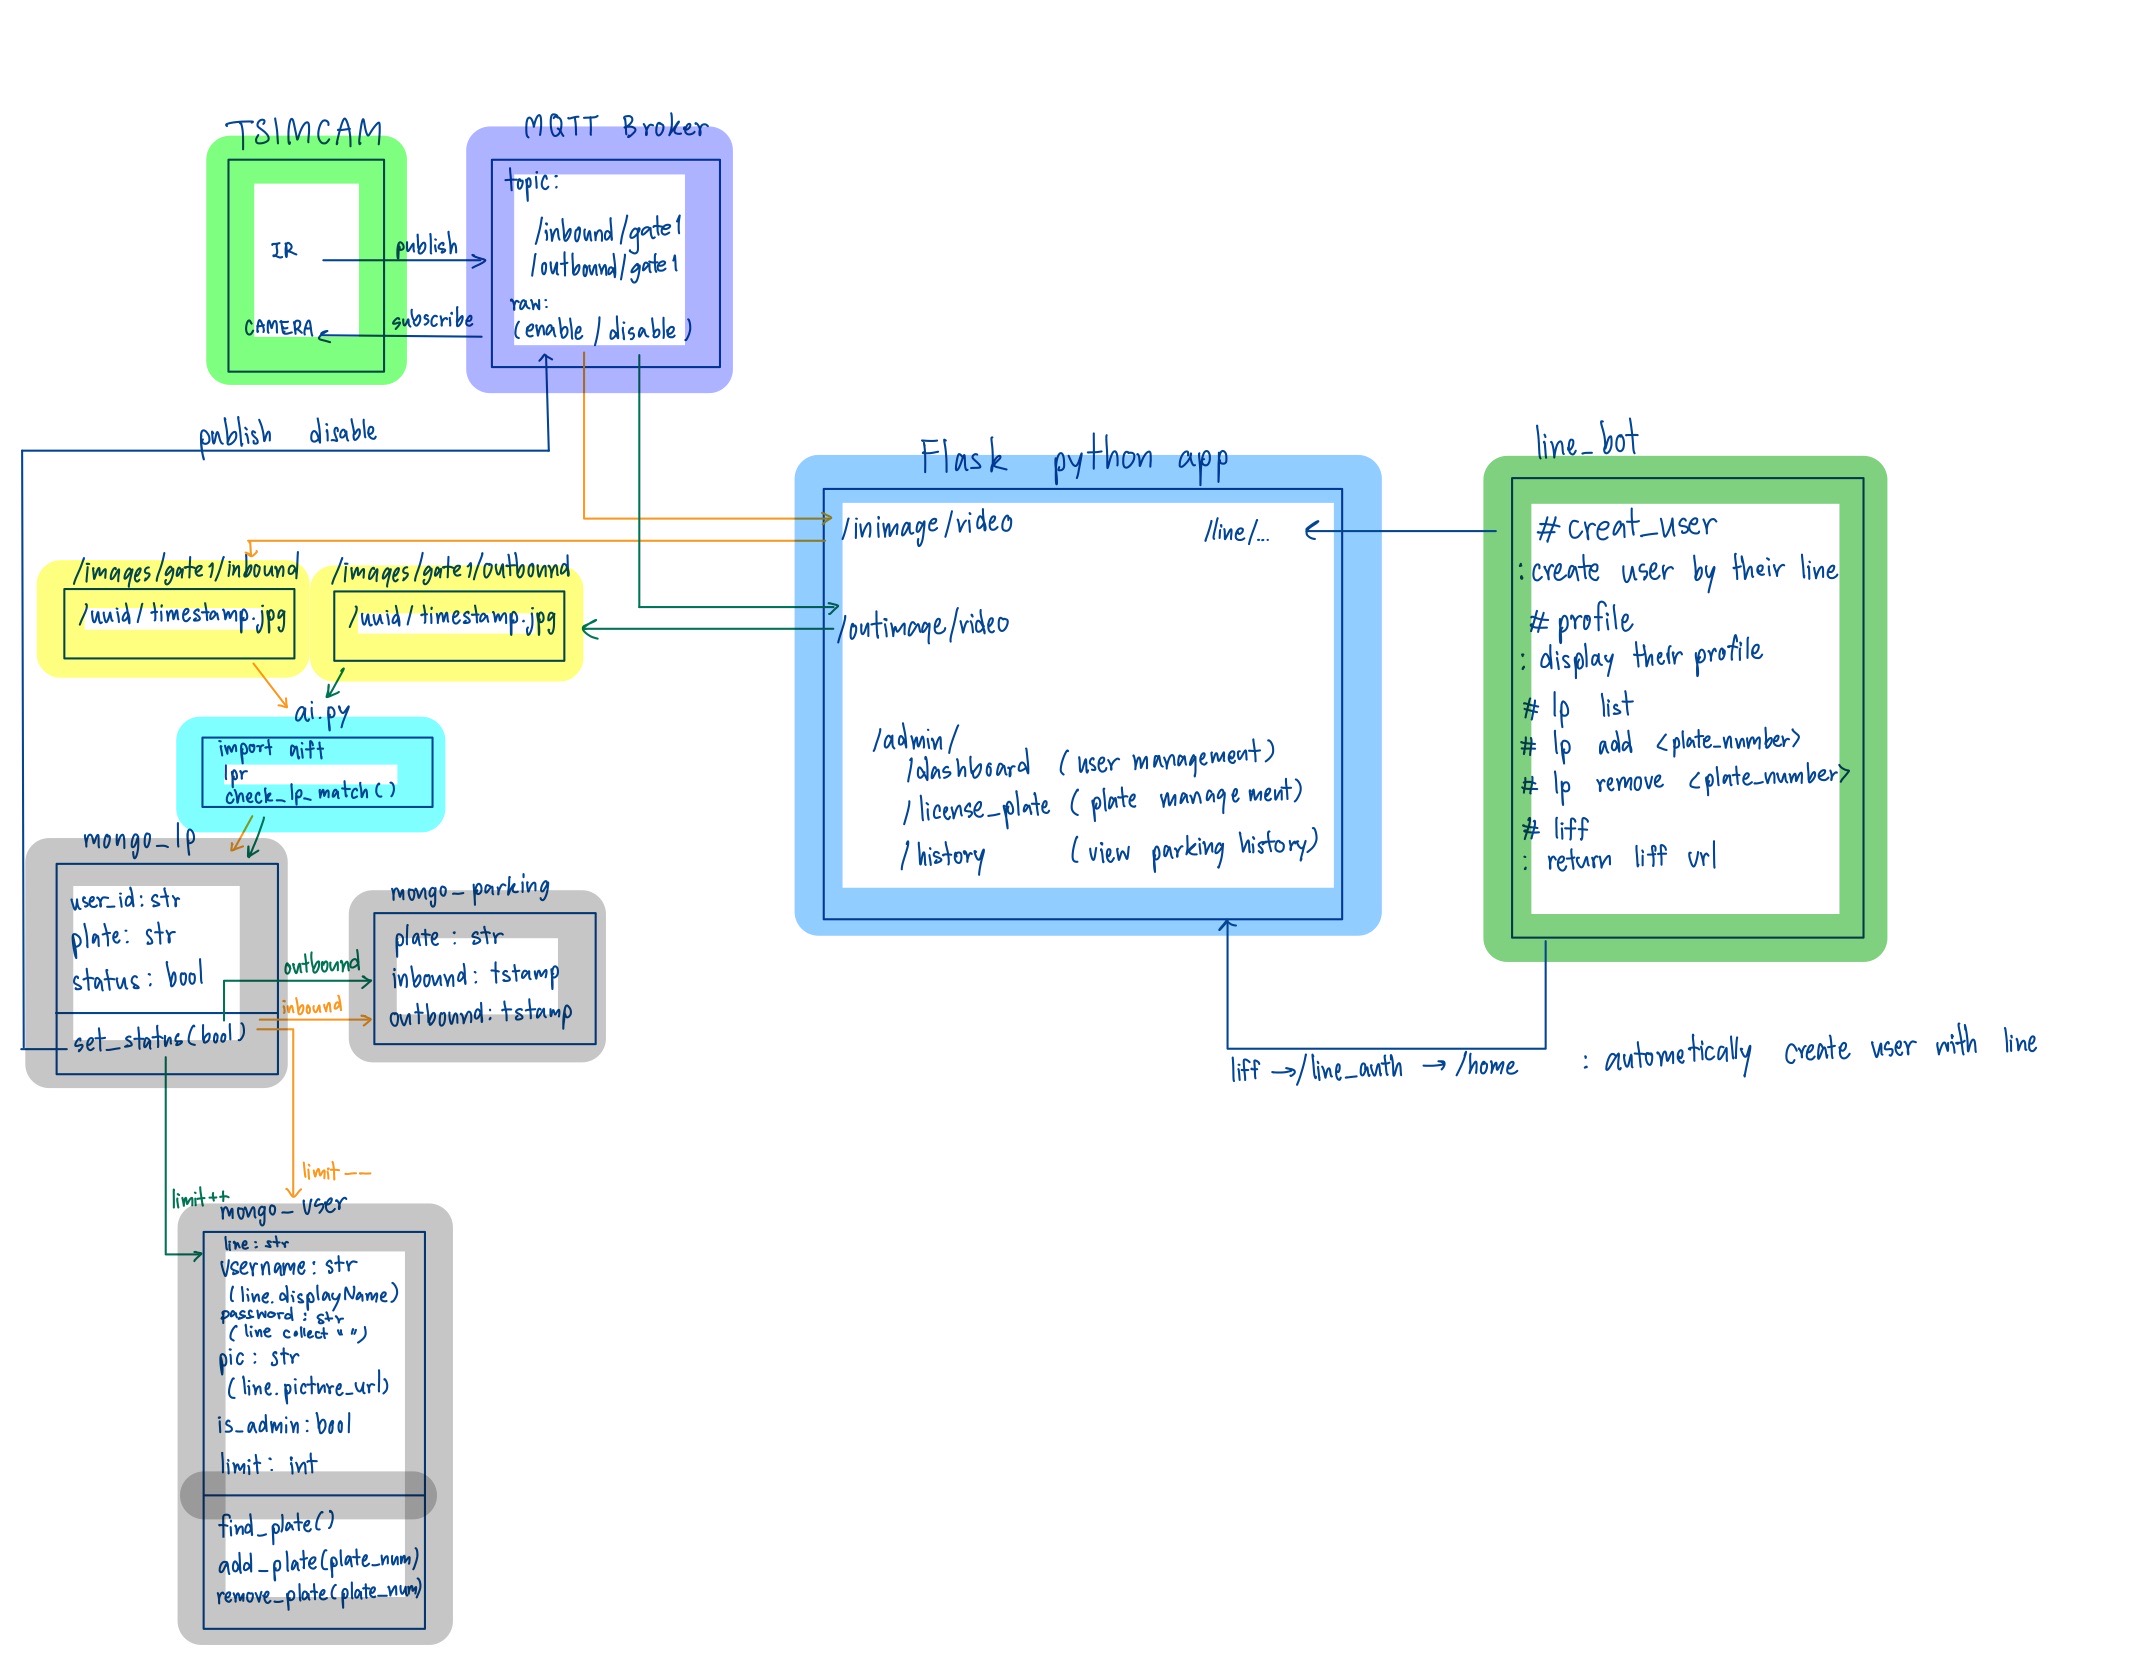 TSIMCAM
IR
CAMERA
publish
subscribe
MQTT Broker
topic:
/inbound/gate1
/outbound/gate1
raw:
(enable / disable)
publish disable
Flask python app
/inimage/video
/line/...
/outimage/video
/admin/
/dashboard (user management)
/license_plate (plate management)
/history (view parking history)
line_bot
# creat_user
: create user by their line
# profile
: display their profile
# lp list
# lp add <plate_number>
# lp remove <plate_number>
# liff
: return liff url
liff → /line_auth → /home : autometically create user with line
/images/gate1/inbound
/uuid/timestamp.jpg
/images/gate1/outbound
/uuid/timestamp.jpg
ai.py
import aift
lpr
check_lp_match()
mongo_lp
user_id: str
plate: str
status: bool
set_status(bool)
outbound
inbound
mongo_parking
plate : str
inbound: tstamp
outbound: tstamp
limit--
limit++
mongo_user
line: str
username: str
(line.displayName)
password: str
(line collect " ")
pic: str
(line.picture_url)
is_admin: bool
limit: int
find_plate()
add_plate(plate_num)
remove_plate(plate_num)